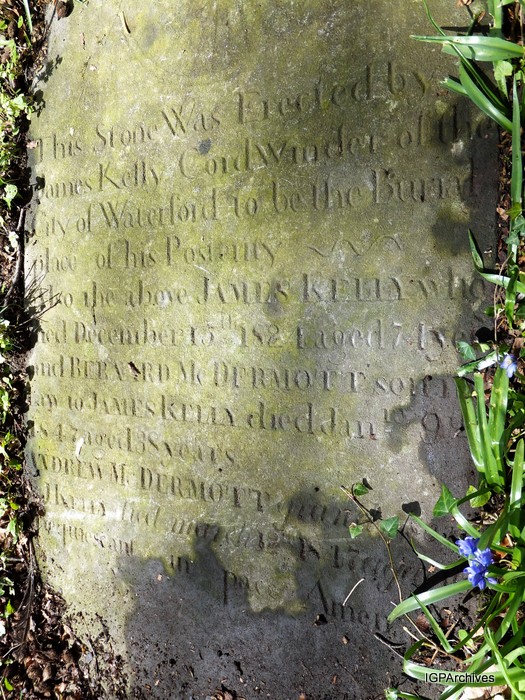 This Stone Was Erected by
James Kelly CordWinder of the
City of Waterford to be the Burial
place of his Posterity
Also the above JAMES KELLY who
died December 15th 1824 aged 74 years
and BERNARD McDERMOTT son in
law to JAMES KELLY died Jany 9
1847 aged 38 years.
ANDREW McDERMOTT
KELLY died march
Requiescant in pace Amen
IGPArchives